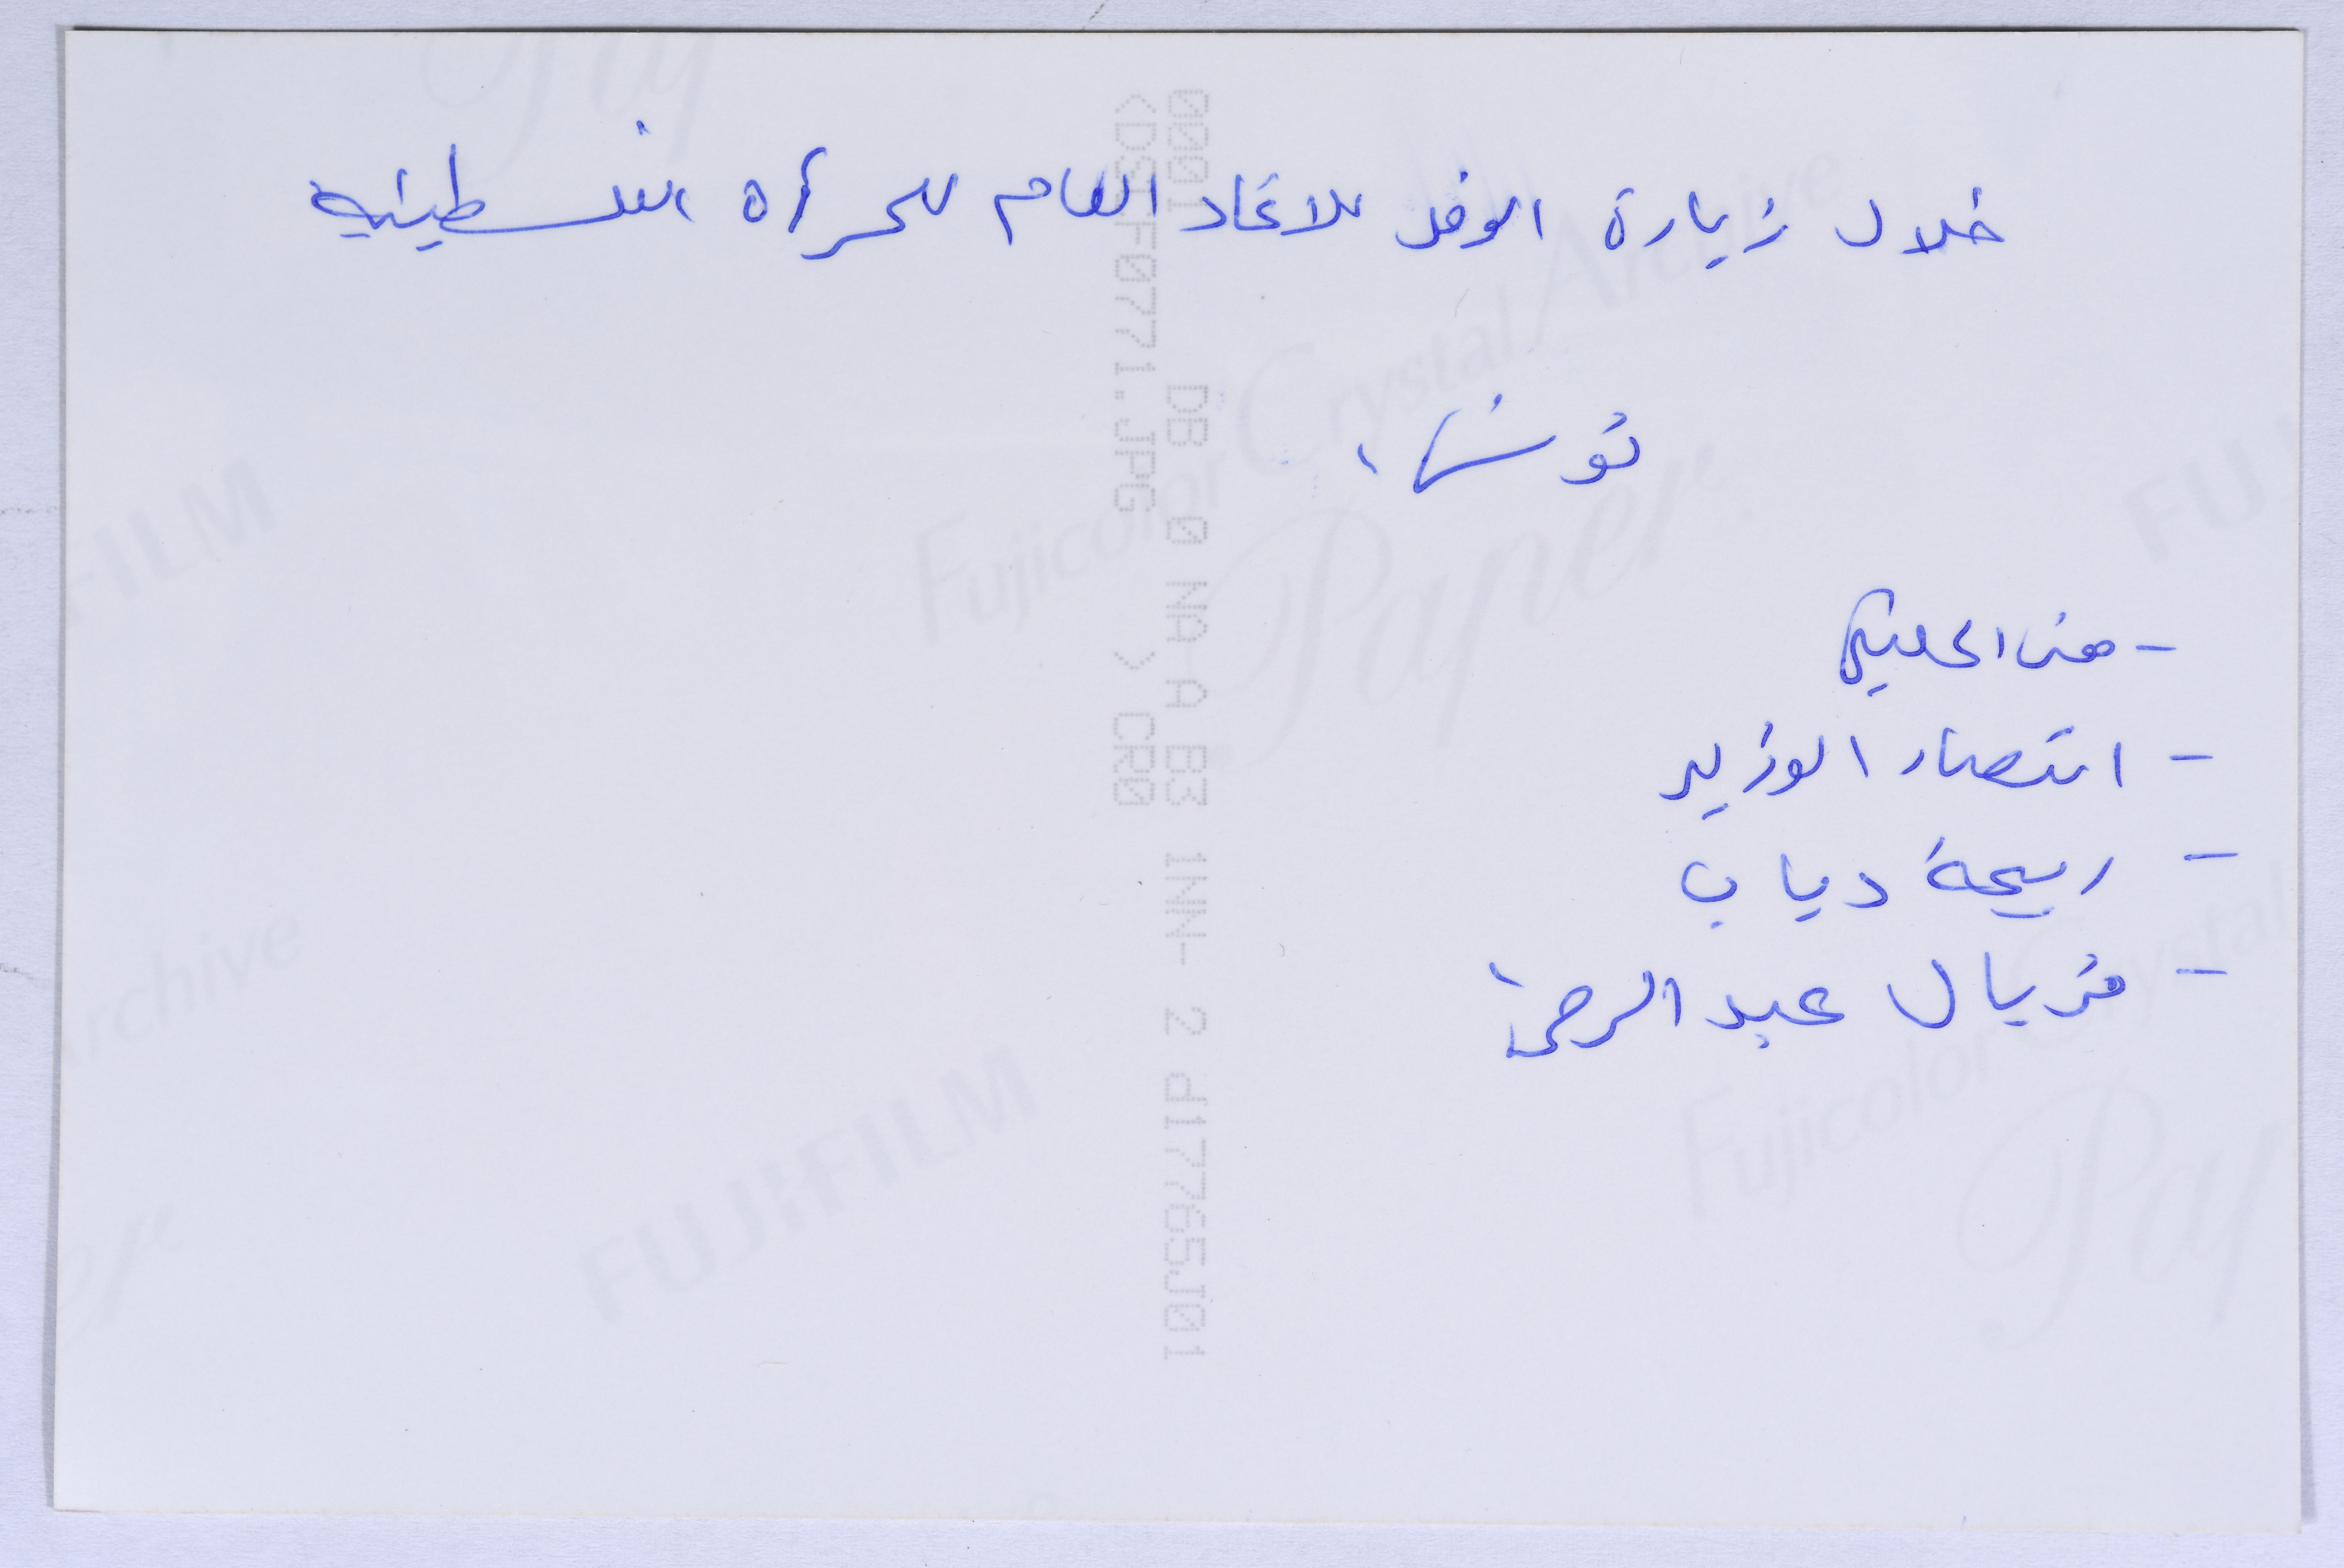 خلال زيارة الوفد للاتحاد العام للمرأة الفلسطينية
تونس،
- منى الخليلي
- انتصار الوزير
- ربيحة دياب
- فريال عبد الرحمن
0001 DB 0 NA A B3 1NN- 2 d17765J01
<DSCF0771.JPG > CR0
Fujicolor Crystal Archive
Paper
FUJIFILM